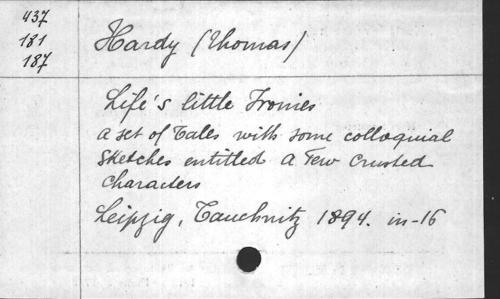 437
181
187
Hardy (Thomas)
Life's little Ironies
a set of Tales with some colloquial
Sketches entitled a Few Crusted
Characters
Leipzig, Tauchnitz 1894. in-16